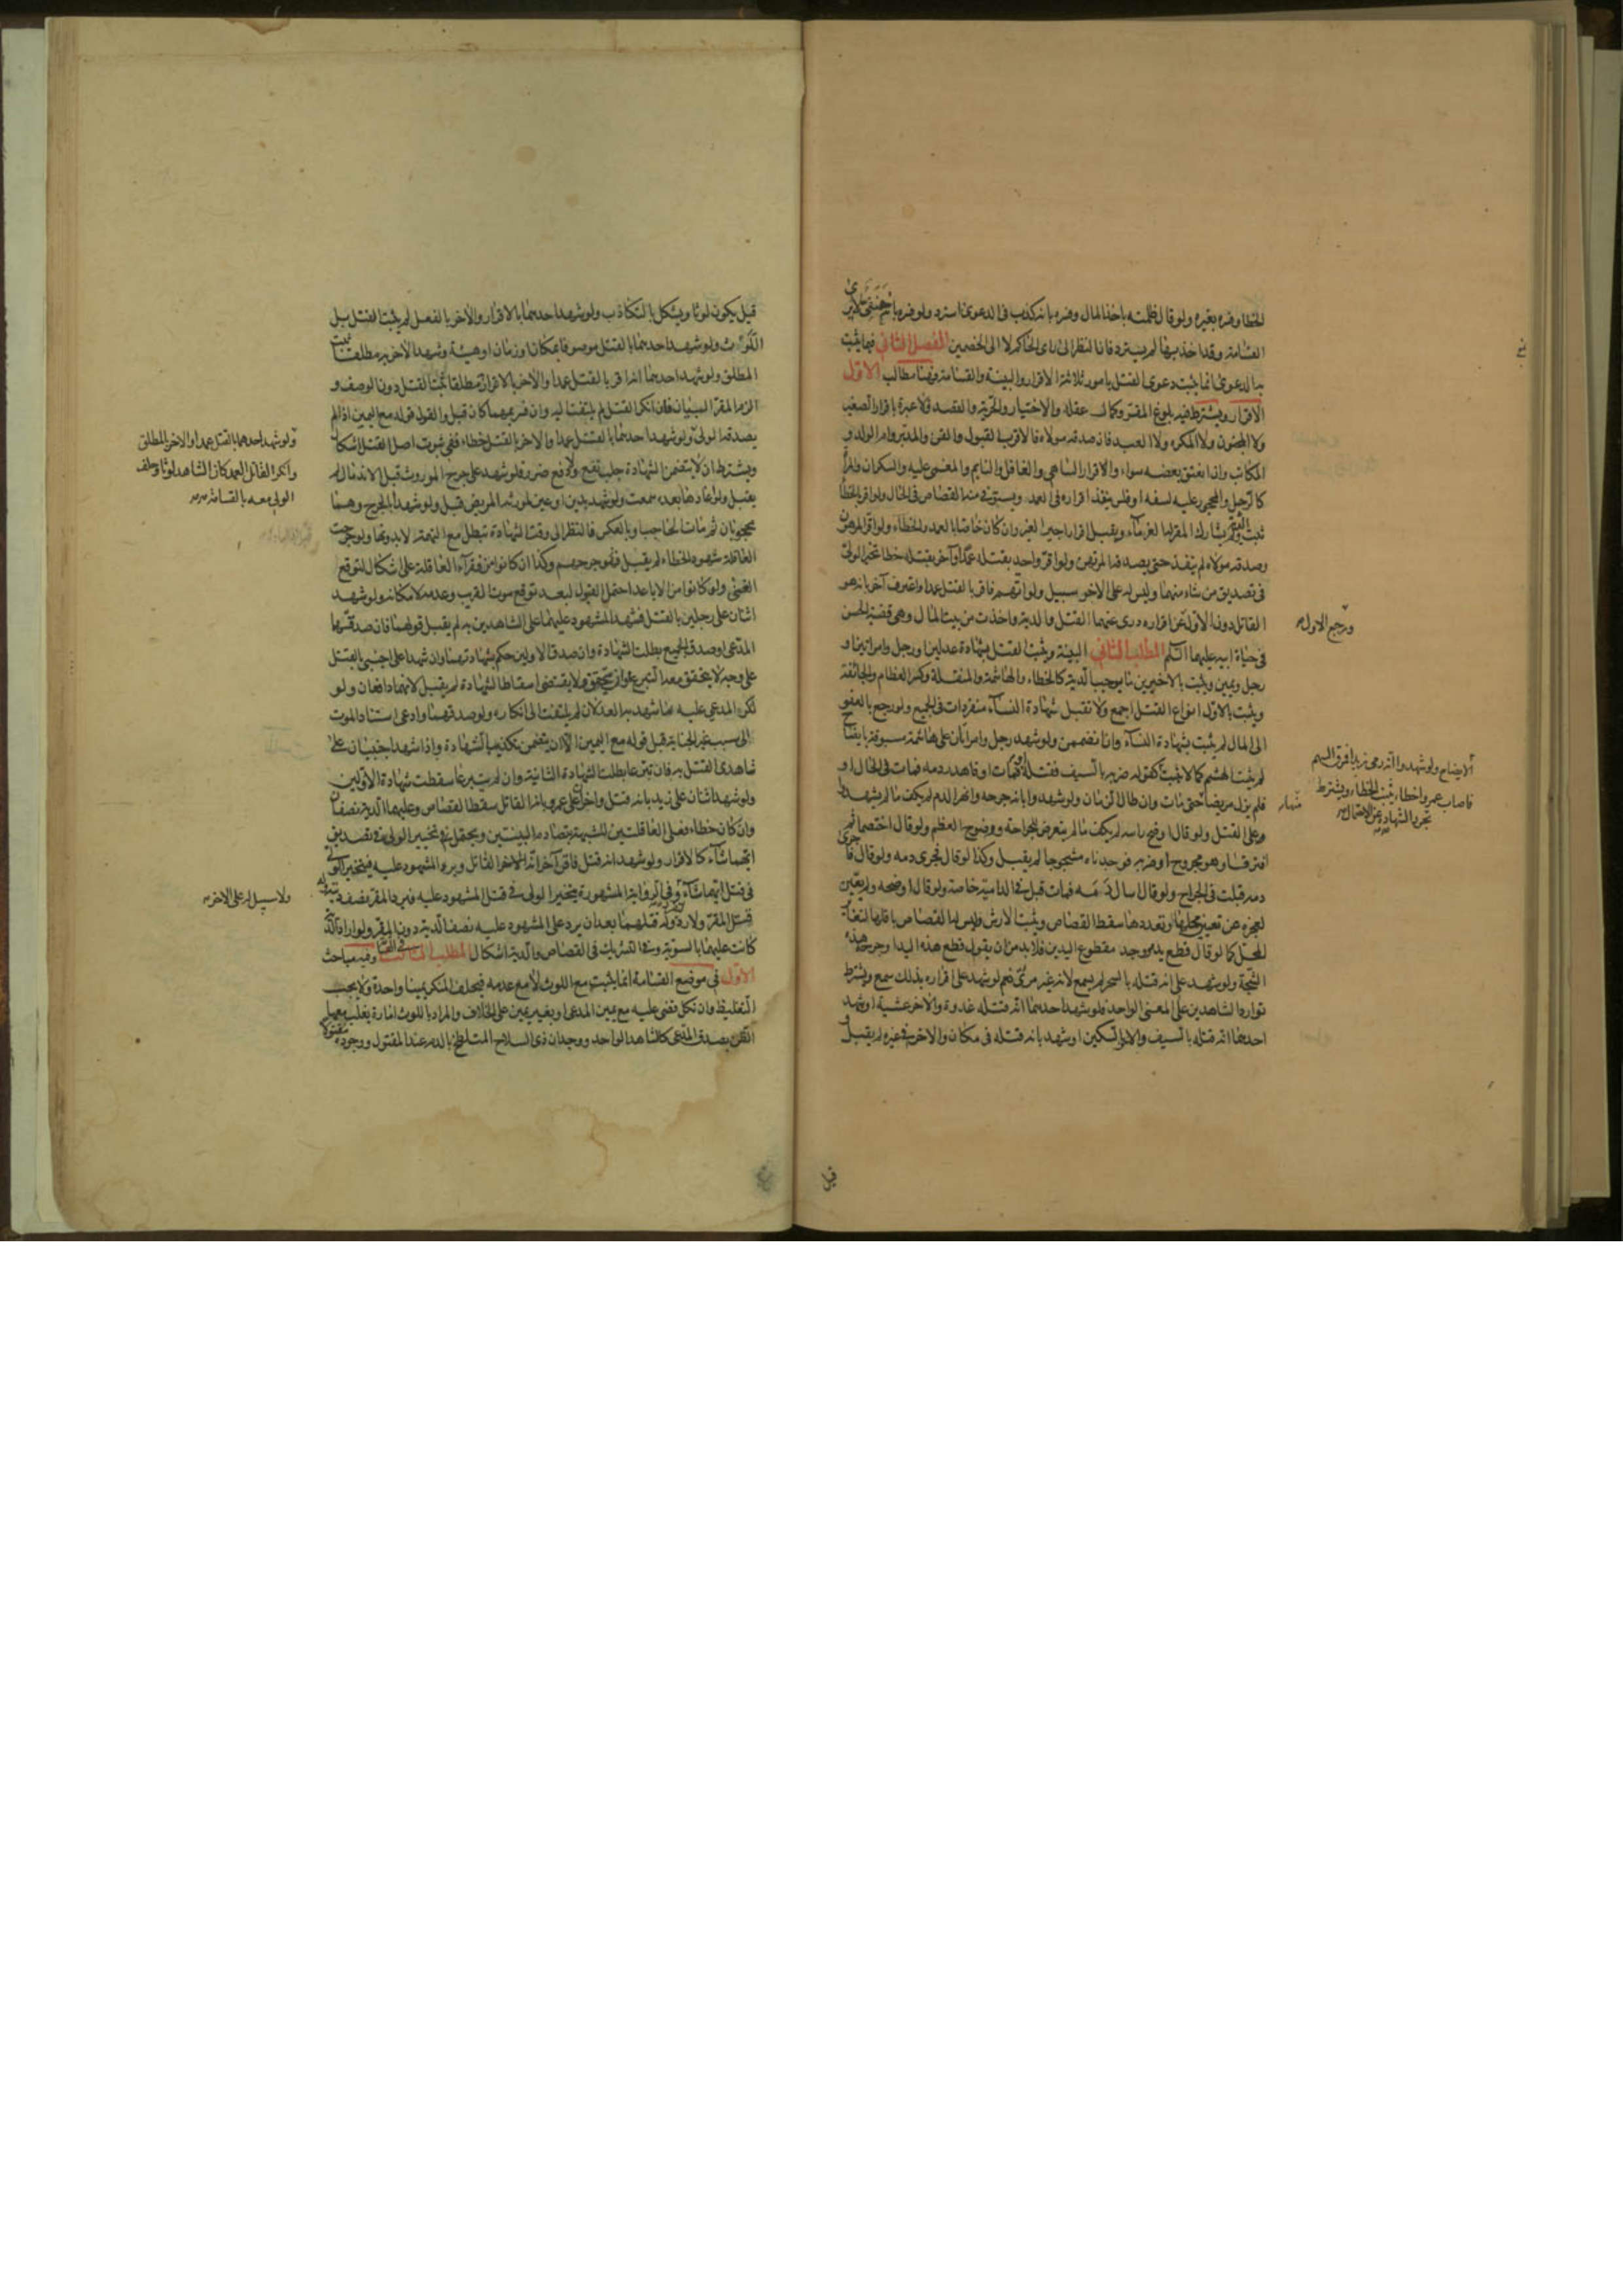 الخطا وفسره بغيره ولو قال ظلمته باخذ المال وفسره بانه كذب في الدعوى استرد ولو فسره بانه حنفي لا يرى
القسامة وقد اخذ بها لم يسترد فانا ننظر الى راى الحاكم لا الى الخصمين الفصل الثاني فيما يثبت
به الدعوى انما يثبت دعوى القتل بامور ثلاثة الاقرار والبينة والقسامة فهنا مطالب الاول
الاقرار ويشترط فيه بلوغ المقر وكمال عقله والاختيار والحرية والقصد فلا عبرة باقرار الصغير
ولا المجنون ولا المكره ولا العبد فان صدقه مولاه فالاقرب القبول والقن والمدبر وام الولد و
المكاتب وان انعتق بعضه سواء ولا اقرار الساهي والغافل والنايم والمغمى عليه والسكران والمرأة
كالرجل والمحجور عليه لسفه او فلس ينفذ اقراره في العمد ويستوفى منه القصاص في الحال ولو اقر بالخطأ
ثبت ولم يشارك المقر له الغرماء ويقبل اقرار اجير الغير وان كان خاصا بالعمد والخطاء ولو اقر المرهون
وصدقه مولاه لم ينفذ حتى يصدقه المرتهن ولو اقر واحد بقتله عمدا وآخر بقتله خطا تخير الولي
في تصديق من شاء منهما وليس له على الاخر سبيل ولو اتهم فاقر بالقتل عمدا واعترف آخر بانه هو
القاتل دون الاول عن اقراره درى عنهما القتل والدية واخذت من بيت المال وهي قضية الحسن
ورجع الاول
في حياة ابيه عليهما السلم المطلب الثاني البينة ويثبت القتل بشهادة عدلين او رجل وامراتين او
رجل ويمين ويثبت بالاخيرين ما يوجب الدية كالخطاء والهاشمة والمنقلة وكسر العظام والجائفة
ويثبت بالاول انواع القتل اجمع ولا تقبل شهادة النساء منفردات في الجميع ولو رجع بالعفو
الى المال لم يثبت بشهادة النساء وان انضممن ولو شهد رجل وامراتان على هاشمة مسبوقة بايضاح
لم يثبت الهشم كما لا يثبت كقوله ضربه بالسيف فقتله او فمات او فاهدر دمه فمات في الحال او
الايضاح ولو شهدوا انه رمى زيدا فمرق السهم
فاصاب عمروا خطاء ثبت الخطاء ويشترط
تجرد الشهادة عن الاحتمال
فلم يزل مريضا حتى مات وان طال الزمان ولو شهدوا بانه جرحه وانهر الدم لم يكف ما لم يشهدوا
على القتل ولو قال اوضح راسه لم يكف ما لم يتعرض للجراحة ووضوح العظم ولو قال اختصما ثم
افترقا وهو مجروح او ضربه فوجدناه مشجوجا لم يقبل وكذا لو قال فجرى دمه ولو قال فاجرى
دمه قبلت في الجراح ولو قال اسال دمه فمات قبل في الدامية خاصة ولو قال اوضحه ولم يعين
لعجزه عن تعيين محلها وتعددها سقط القصاص ويثبت الارش وليس لها القصاص باقلها
المحل كما لو قال قطع يده ووجد مقطوع اليدين فلا بد من ان يقول قطع هذه اليد او جرح هذه
الشجة ولو شهد على انه قتله بالسحر لم يسمع لانه غير مرئي نعم لو شهد على اقراره بذلك سمع ويشترط
توارد الشاهدين على المعنى الواحد فلو شهد احدهما انه قتله غدوة والاخر عشية او شهد
احدهما انه قتله بالسيف والاخر بالسكين او شهد بانه قتله في مكان والاخر في غيره لم يقبل
قيل
قيل يكون لوثا ويشكل بالتكاذب ولو شهد احدهما بالاقرار والآخر بالفعل لم يثبت القتل بل
اللوث ولو شهد احدهما بالقتل موصوفا بمكان او زمان او هيئة وشهد الآخر به مطلقا ثبت
المطلق ولو شهد احدهما انه اقر بالقتل عمدا والاخر بالاقرار به مطلقا ثبت القتل دون الوصف و
الزم المقر البيان فان انكر القتل لم يلتفت اليه وان فسر بهما كان قبل والقول قوله مع اليمين اذا لم
يصدقه الولي ولو شهد احدهما بالقتل عمدا والاخر بالقتل خطاء ففي ثبوت اصل القتل اشكال
ولو شهد احدهما بالقتل عمدا والاخر بالمطلق
وانكر القاتل العمد كان الشاهد لوثا وحلف
الولي معه بالقسامة
ويشترط ان لا يتضمن الشهادة جلب نفع ولا دفع ضرر فلو شهد على جرح الموروث قبل الاندمال لم
يقبل ولو اعادها بعده سمعت ولو شهد بدين او عين لمورثه المريض قبل ولو شهدا بالجرح وهما
محجوبان ثم مات الحاجب او بالعكس فالنظر الى وقت الشهادة تبطل مع التهمة لا بدونها ولو جرحت
العاقلة شهود الخطاء لم يقبل جرحهم وكذا ان كانوا من فقراء العاقلة على اشكال لتوقع
الغنى ولو كانوا من الاباعد احتمل القبول لبعد توقع موت القريب وعدمه لامكانه ولو شهد
اثنان على رجلين بالقتل فشهد المشهود عليهما على الشاهدين به لم يقبل قولهما فان صدقهما
المدعى او صدق الجميع بطلت الشهادة وان صدق الاولين حكم بشهادتهما وان شهدا على اجنبي بالقتل
على وجه لا يتحقق معه التبرع او ان تحقق ولا يقتضى اسقاط الشهادة لم يقبل لانهما دافعان ولو
انكر المدعى عليه ما شهد به العدلان لم يلتفت الى انكاره ولو صدقهما وادعى استناد الموت
الى سبب غير الجناية قبل قوله مع اليمين الا ان يتضمن تكذيبا للشهادة واذا شهد اجنبيان على
شاهدى القتل به فان تبرعا بطلت الشهادة الثانية وان لم يتبرعا سقطت شهادة الاولين
ولو شهد اثنان على زيد بانه قتل واخران على عمرو بانه القاتل سقط القصاص وعليهما الدية نصفان
وان كان خطاء فعلى العاقلتين للشبهة بتصادم البينتين ويحتمل تخيير الولي في تصديق
ايهما شاء كالاقرار ولو شهد انه قتل فاقر آخر انه القاتل وبرء المشهود عليه فيتخير الولي
في قتل ايهما شاء وفي الرواية المشهورة يتخير الولي في قتل المشهود عليه فيرد المقر نصف ديته وله
قتل المقر ولا رد وله قتلهما بعد ان يرد على المشهود عليه نصف الدية دون المقر ولو اراد الدية
ولا سبيل له على الاخر
كانت عليهما بالسوية وفي التشريك في القصاص والدية اشكال المطلب الثالث في القسامة وفيه مباحث
الاول في موضع القسامة انما يثبت مع اللوث لا مع عدمه فيحلف المنكر يمينا واحدة ولا يجب
التغليظ وان نكل قضى عليه مع يمين المدعى او بغير يمين على الخلاف والمراد باللوث امارة يغلب معها
الظن بصدق المدعى كالشاهد الواحد ووجدان ذى السلاح المتلطخ بالدم عند المقتول ووجوده مقتولا